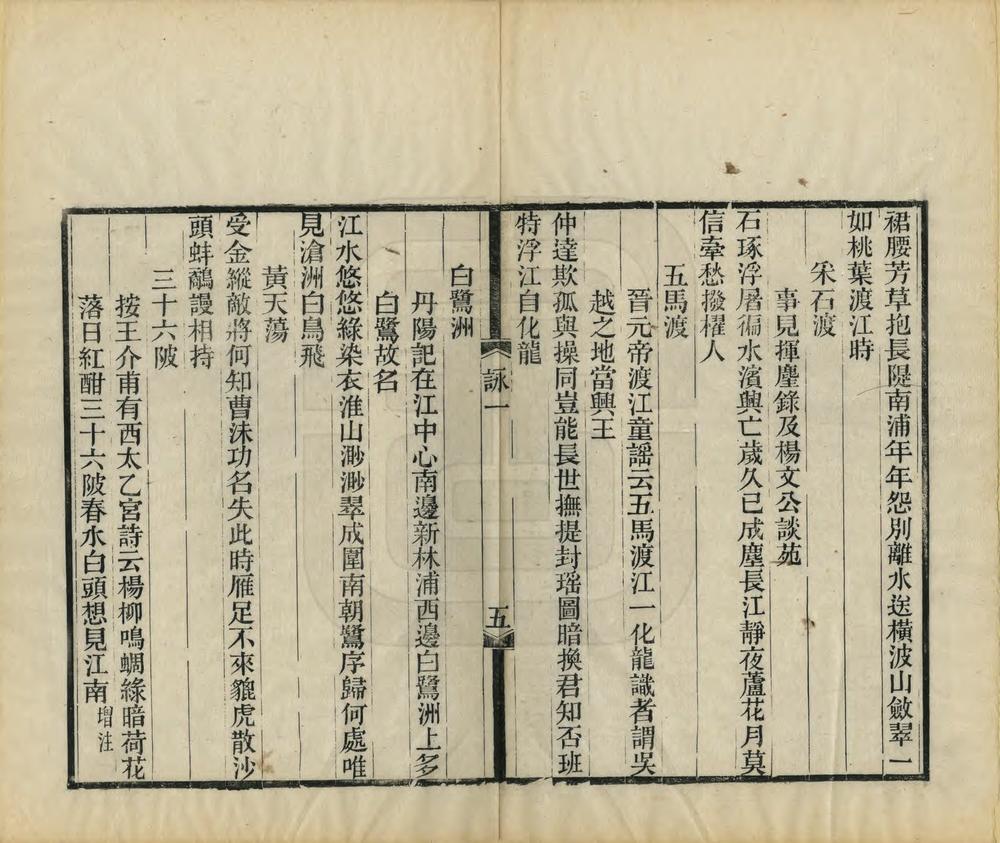 裙腰芳草抱長隄南浦年年怨別離水送橫波山斂翠一
如桃葉渡江時
采石渡
事見揮麈錄及楊文公談苑
石琢浮屠徧水濱興亡歲久已成塵長江靜夜蘆花月莫
信牽愁撥櫂人
五馬渡
晉元帝渡江童謠云五馬渡江一化龍識者謂吳
越之地當興王
仲達欺孤與操同豈能長世撫提封瑶圖暗換君知否班
特浮江自化龍
詠一
五
白鷺洲
丹陽記在江中心南邊新林浦西邊白鷺洲上多
白鷺故名
江水悠悠綠染衣淮山渺渺翠成圍南朝鷺序歸何處唯
見滄洲白鳥飛
黃天蕩
受金縱敵將何知曹沬功名失此時雁足不來貔虎散沙
頭蚌鷸謾相持
三十六陂
按王介甫有西太乙宮詩云楊柳鳴蜩綠暗荷花
落日紅酣三十六陂春水白頭想見江南增注